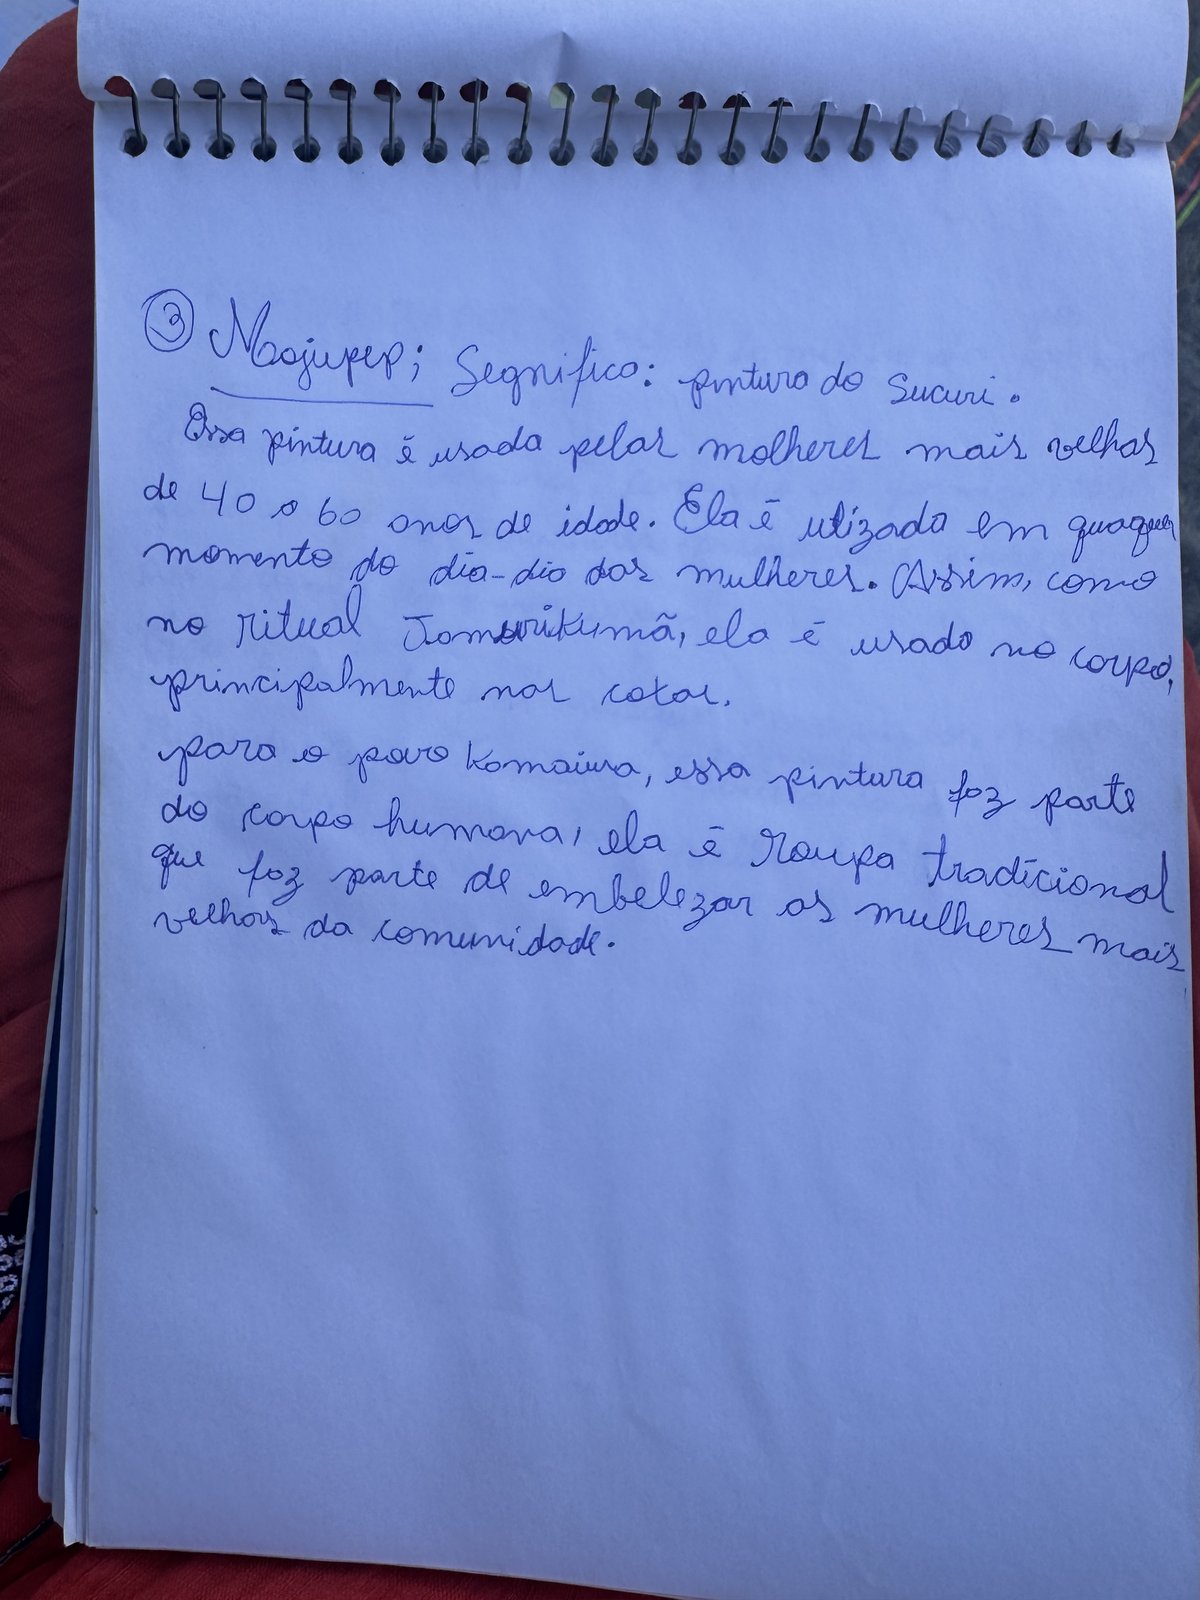 ③ Moojupep; Segnifico: pintura do Sucuri.
Essa pintura é usada pelas molheres mais velhas
de 40 a 60 anos de idade. Ela é utizada em quaquer
momento do dia-dia das mulheres. Assim, como
no ritual Jamurikumã, ela é usado no corpo,
principalmente nas cotas.
para o povo Kamaiura, essa pintura faz parte
do corpo humana, ela é roupa tradicional
que faz parte de embelezar as mulheres mais
velhas da comunidade.